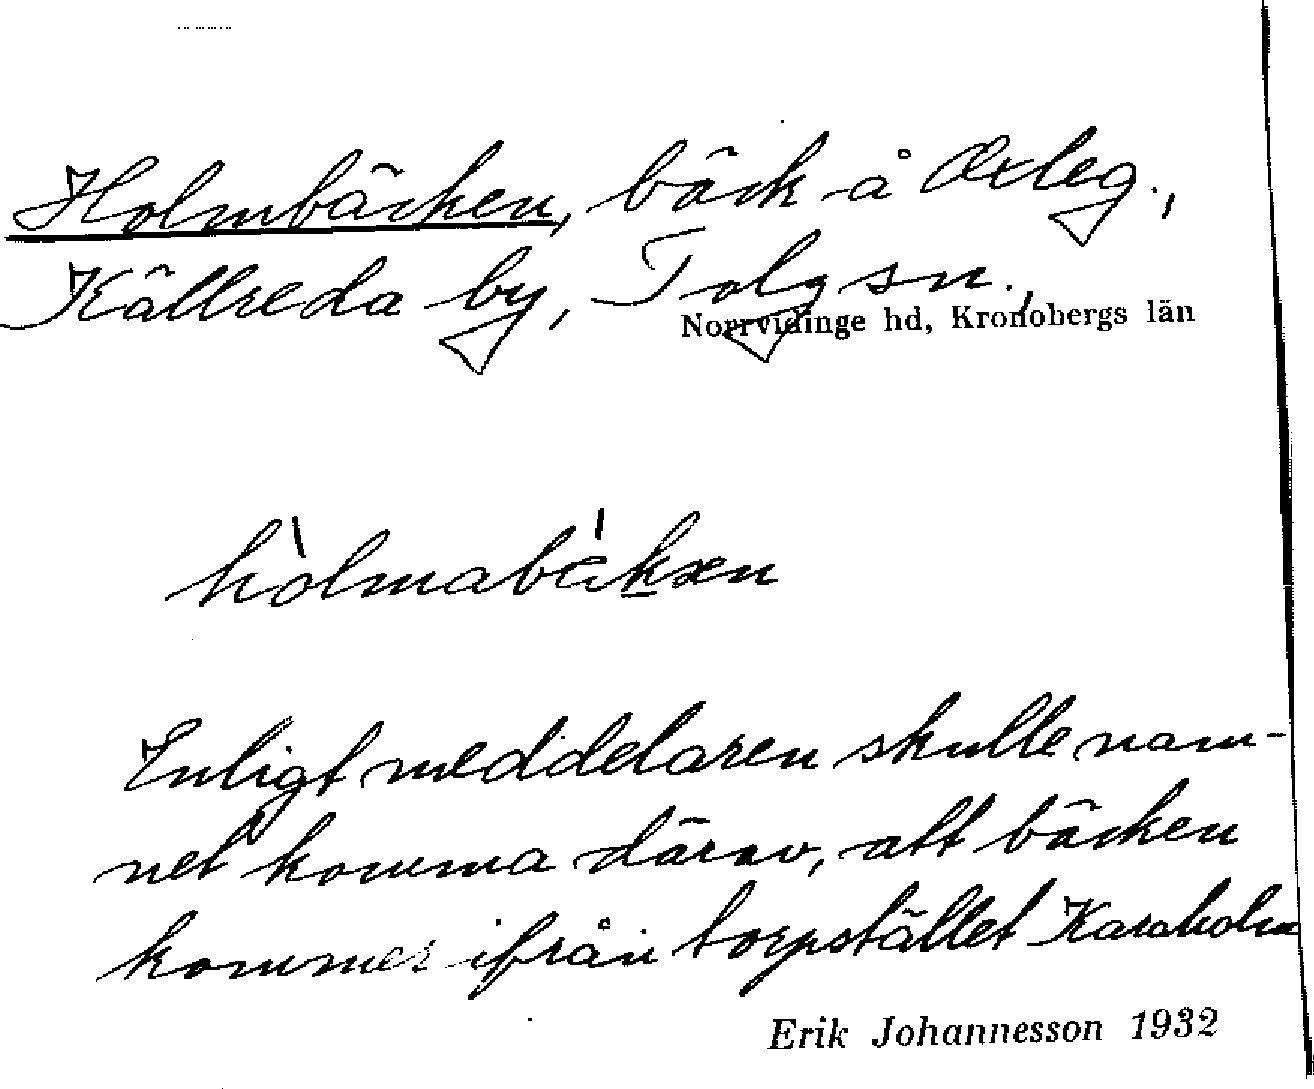 Holmbäcken, bäck å Öxleg.,
Källreda by, Tolg sn.,
Norrvidinge hd, Kronobergs län
hòlmabäkæn
Enligt meddelaren skulle nam-
net komma därav, att bäcken
kommer ifrån torpstället Karaholm
Erik Johannesson 1932